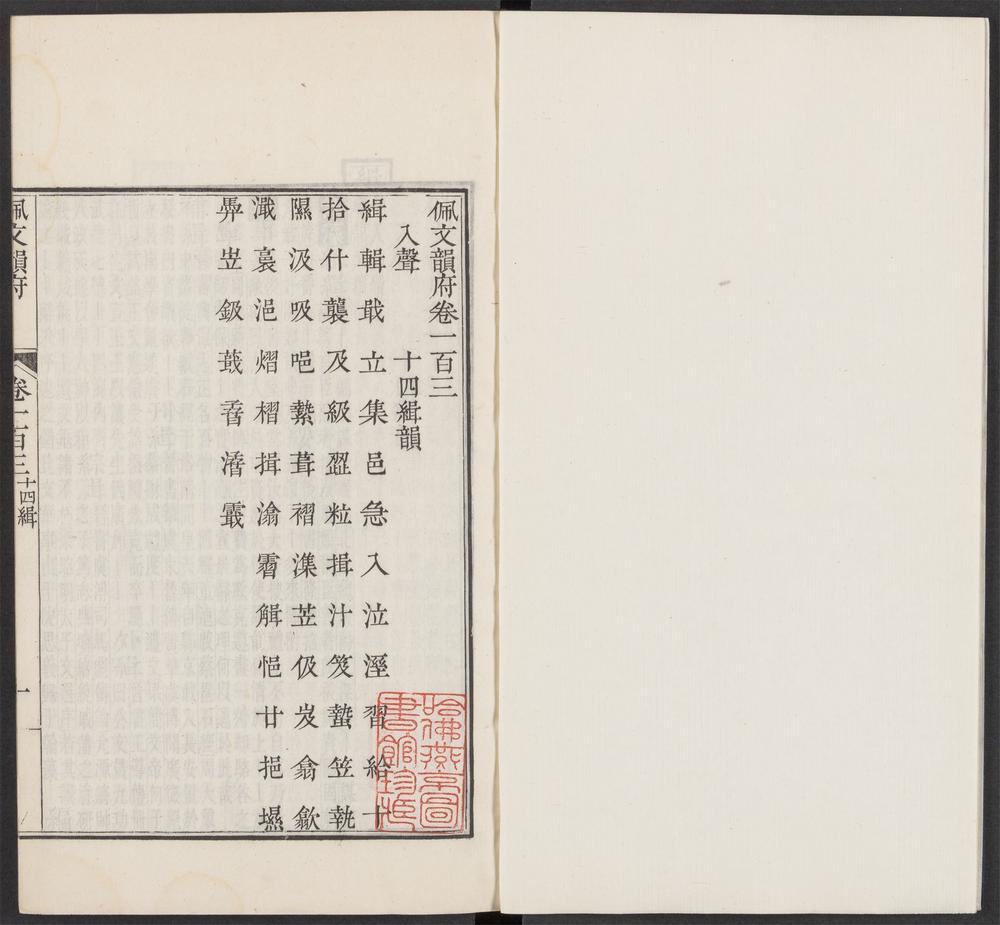 佩文韻府卷一百三
入聲 十四緝韻
緝輯戢立集邑急入泣溼習給十
拾什襲及級歰粒揖汁笈蟄笠執
隰汲吸唈縶葺褶潗苙伋岌翕歙
濈裛浥熠槢揖潝霫鏶悒廿挹
㗱岦鈒蕺
佩文韻府
卷一百三 十四緝
一
哈佛燕京圖書館珍藏